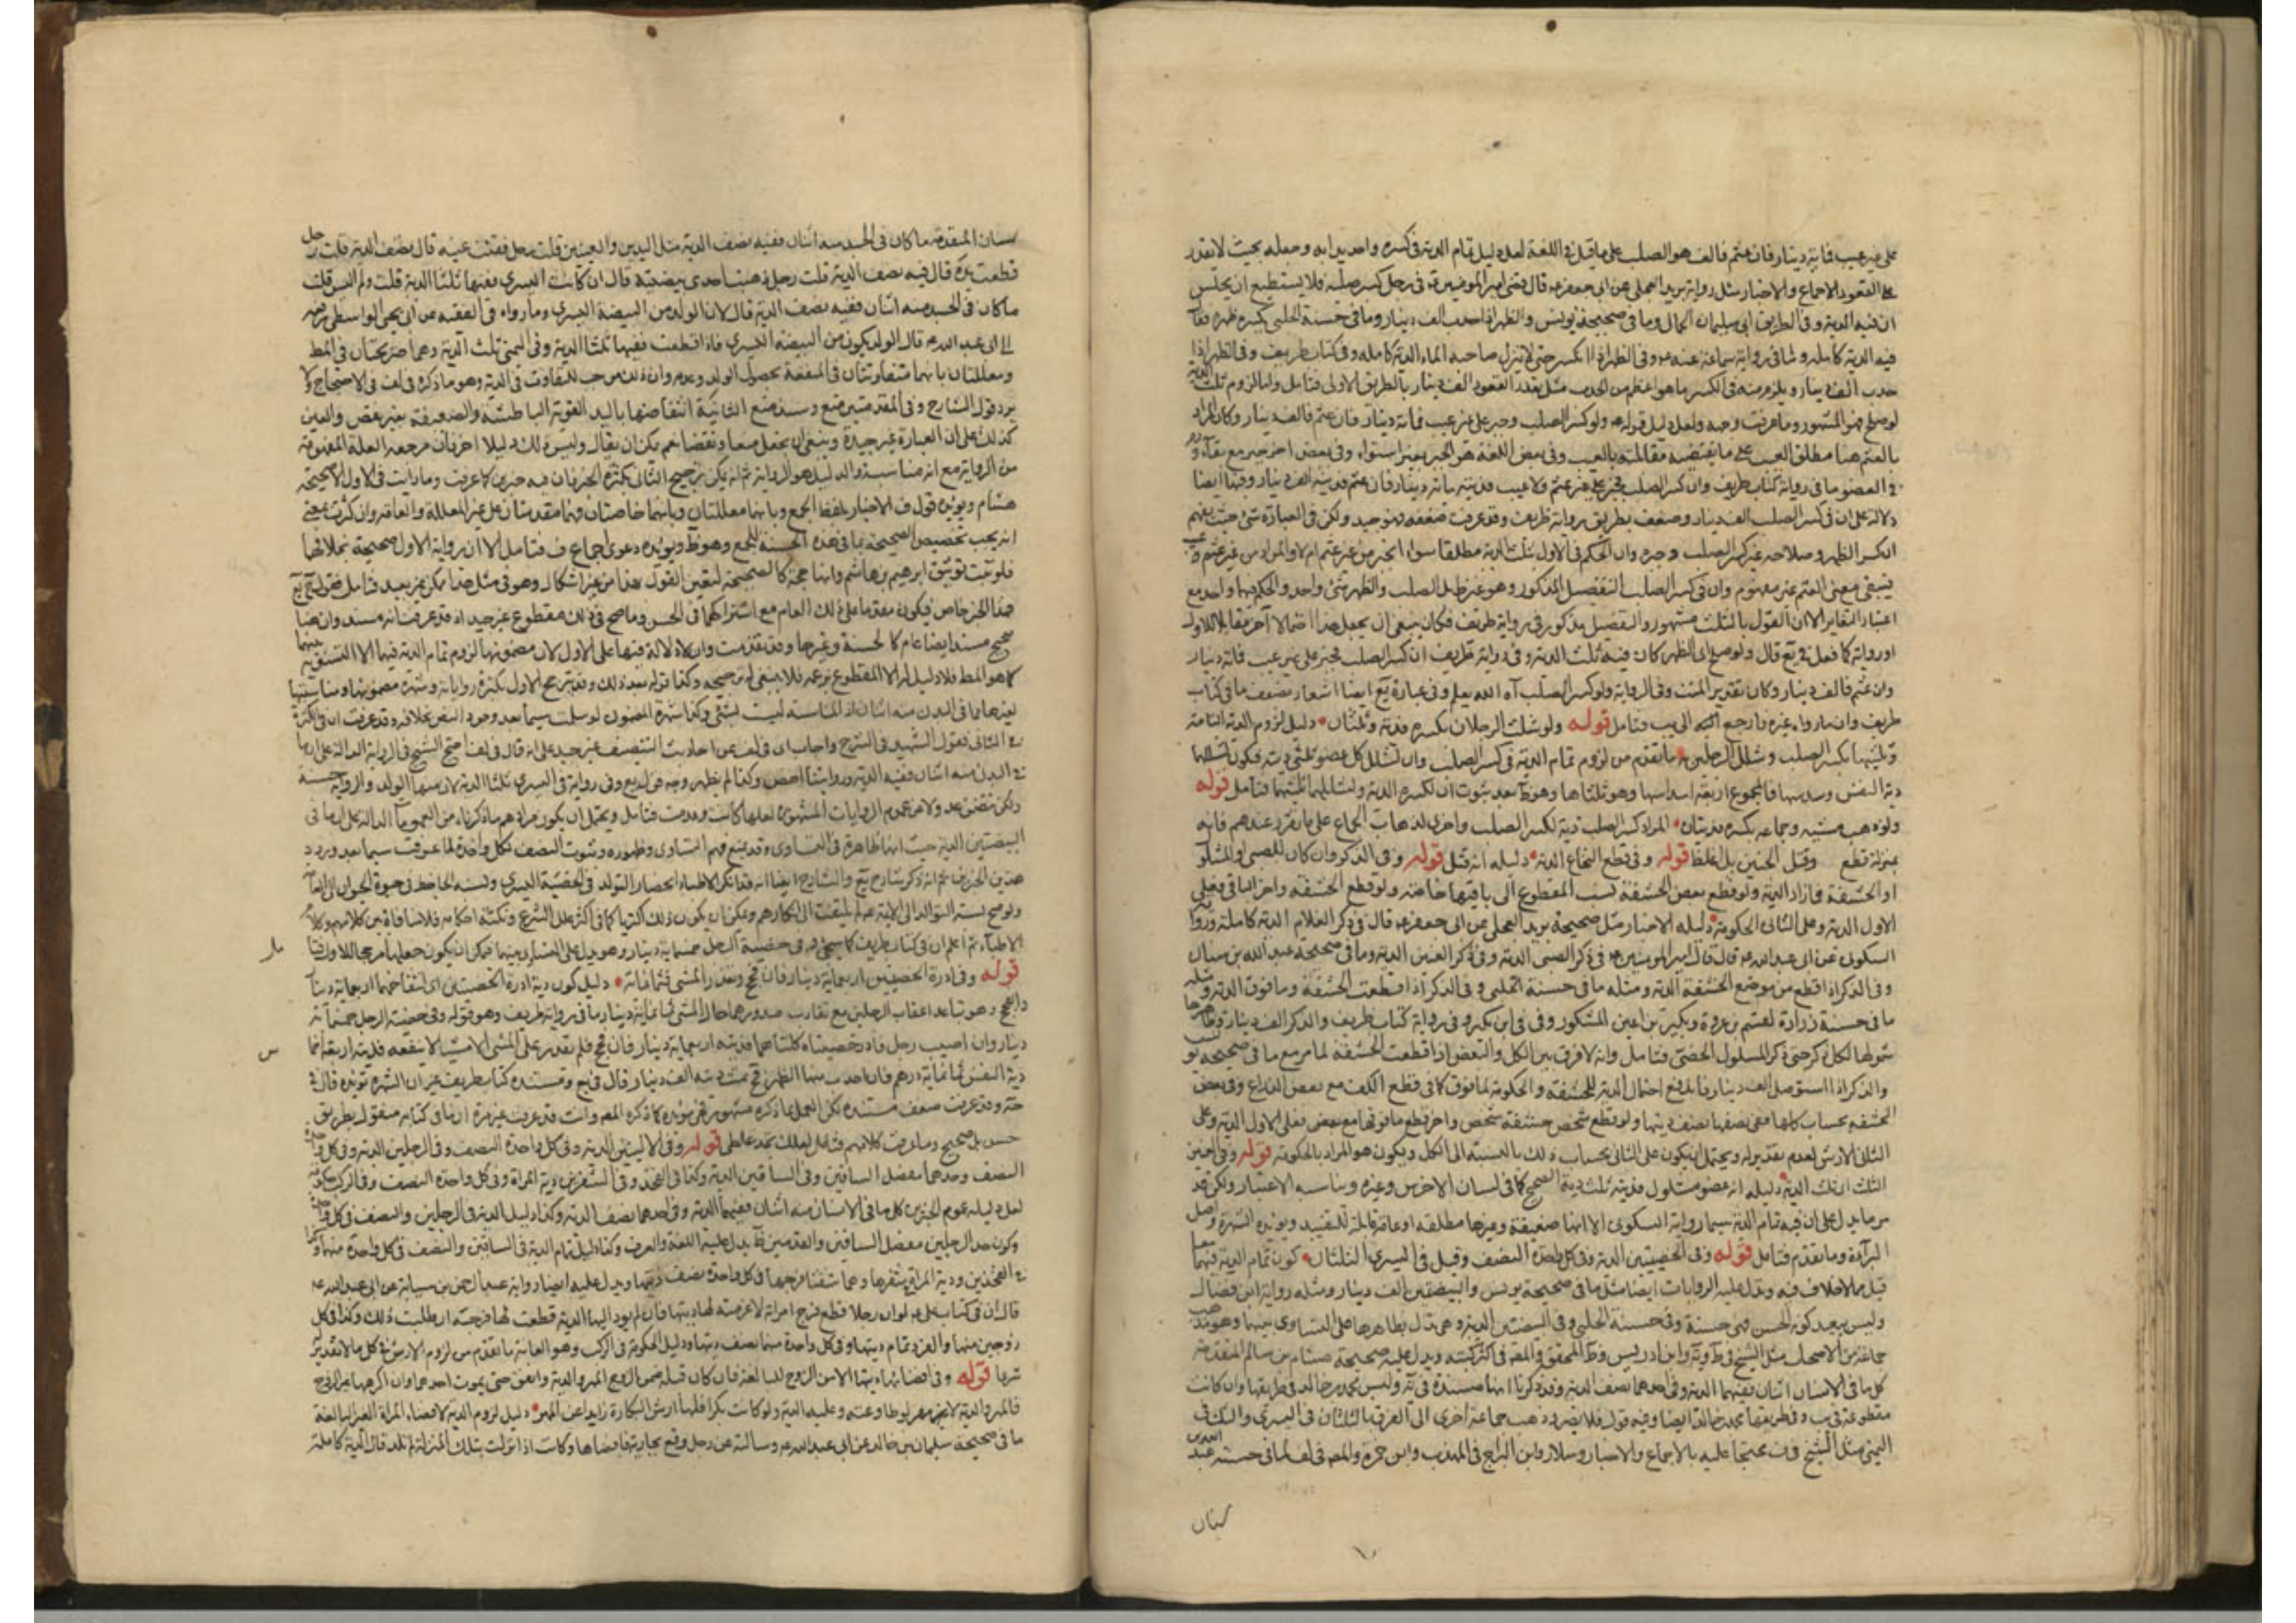 على غير عيب فمائة دينار فان عثم فالف هو الصلب على ما قيل في اللغة لعل دليل تمام الدية في كسره واحديدابه وجعله بحيث لا يقدر
على القعود الاجماع والاخبار مثل رواية بريد العجلي عن ابي جعفر ع قال قضى امير المؤمنين ع في رجل كسر صلبه فلا يستطيع ان يجلس
ان فيه الدية وفي الطريق ابي سليمان الحمال وما في صحيحة يونس والظهر اذا احدب الف دينار وما في حسنة الحلبي كسر ظهره فقال
فيه الدية كاملة ولما في رواية سماعة عنه ع وفي الظهر اذا انكسر حتى لا ينزل صاحبه الماء الدية كاملة وفي كتاب ظريف وفي الظهر اذا
حدب الف دينار ويلزم منه في الكسر ما هو اعظم من الحدب مثل بعدد القعود الف دينار بالطريق الاولى فتامل واما لزوم ثلث الدية
لو صلح فهو المشهور وما عرفت وجهه ولعل دليل قوله ولو كسر الصلب وجبر على غير عيب فمائة دينار فان عثم فالف دينار وكان المراد
بالعثم هنا مطلق العيب على ما يقتضيه مقابلته بالعيب وفي بعض اللغة هو الجبر بغير استواء وفي بعض اخر جبر مع بقاء ورم
في العضو ما في رواية كتاب ظريف وان كسر الصلب فجبر على غير عثم ولا عيب فديته مائة دينار فان عثم فديته الف دينار وفيها ايضا
دلالة على ان في كسر الصلب الف دينار وضعف بطريق رواية ظريف وقد عرفت ضعفه فهو جيد ولكن في العبارة شئ حيث يفهم
انكسار الظهر وصلاحه غير كسر الصلب وجبره وان الحكم في الاول ثلث الدية مطلقا سواء انجبر من غير عثم ام لا والمراد من غير عثم وعيب
ينبغي معنى العثم غير مفهوم وان في كسر الصلب التفصيل المذكور وهو غير ظ بل الصلب والظهر شئ واحد والحكم فيهما واحد مع
اعتبار التغاير الا ان القول بالثلث مشهور والتفصيل مذكور في رواية ظريف فكان ينبغي ان يجعل هذا احتمالا اخر مقابلا للاول
او رواية كما فعل في يع قال ولو صلح اي الظهر كان فيه ثلث الدية وفي رواية ظريف ان كسر الصلب فجبر على غير عيب فمائة دينار
وان عثم فالف دينار وكان تقدير المتن وفي الرواية ولو كسر الصلب آه الله يعلم وفي عبارة يع ايضا اشعار بضعف ما في كتاب
ظريف وان رواه غيره فارجع اليه الى يب فتامل قوله ولو شلت الرجلان بكسره فدية وثلثان دليل لزوم الدية التامة
وثلثيها بكسر الصلب وشلل الرجلين ما تقدم من لزوم تمام الدية في كسر الصلب وان لشلل كل عضو ثلثي ديته فيكون لشللهما
قوله
ولو ذهب مشيه وجماعه بكسره فديتان المراد كسر الصلب دية لكسر الصلب واخرى لذهاب الجماع على ما تقرر عندهم فانه
بمنزلة قطع قوله وفي قطع النخاع الدية دليله انه قبل قوله وفي الذكر وان كان للصبي او المشلول
او الحشفة فازاد الدية ولو قطع بعض الحشفة نسب المقطوع الى باقيها خاصة ولو قطع الحشفة واخر الباقي فعلى
الاول الدية وعلى الثاني الحكومة دليله الاخبار مثل صحيحة بريد العجلي عن ابي جعفر ع قال في ذكر الغلام الدية كاملة ورواية
السكوني عن ابي عبد الله ع قال قال امير المؤمنين ع في ذكر الصبي الدية وفي ذكر العنين الدية وما في صحيحة عبد الله بن سنان
وفي الذكر اذا قطع من موضع الحشفة الدية ومثله ما في حسنة الحلبي وفي الذكر اذا قطعت الحشفة وما فوق الدية
شمولها لكل ذكر حتى ذكر المسلول الخصي فتامل وانه لا فرق بين الكل والبعض اذا قطعت الحشفة لما مر مع ما في صحيحة
والذكر اذا استوصل الف دينار فاندفع احتمال الدية للحشفة والحكومة لما فوق كما في قطع الكف مع بعض الذراع وفي بعض
الحشفة بحساب كلها ففي نصفها نصف ديتها ولو قطع شخص حشفة شخص واخر قطع ما فوقها مع بعض فعلى الاول الدية وعلى
الثاني الارش لعدم تقدير له ويحتمل ان يكون على الثاني بحساب ذلك بالنسبة الى الكل ويكون هو المراد بالحكومة قوله وفي العنين
الثلث اي ثلث الدية دليله انه عضو مشلول فديته ثلث دية الصحيح كما في لسان الاخرس وغيره ويناسبه الاعتبار ولكن قد
مر ما يدل على ان فيه تمام الدية سيما رواية السكوني الا انها ضعيفة وغيرها مطلقة او عامة قابلة للتقييد ويؤيده الشهرة واصل
البراءة وما تقدم فتامل قوله وفي الخصيتين الدية وفي كل واحدة النصف وقيل في اليسرى الثلثان كون تمام الدية فيهما
قيل مما لا خلاف فيه ويدل عليه الروايات ايضا مثل ما في صحيحة يونس والبيضتين الف دينار ومثله رواية ابن فضال
وليس ببعيد كونه الحسن فهي حسنة وفي حسنة الحلبي وفي البيضتين الدية وهي تدل بظاهرها على التساوي بينهما وهو مذهب
جماعة من الاصحاب مثل الشيخ في ط وية وابن ادريس وظ المحقق والمصنف في اكثر كتبه ويدل عليه صحيحة هشام بن سالم المتقدمة
كل ما في الانسان اثنان ففيهما الدية وفي احدهما نصف الدية وقد ذكرنا انها مسندة في يه وليس محمد بن خالد في طريقها وان كانت
مقطوعة في يب وفي طريقها محمد بن خالد ايضا وفيه قول فلا يضر وذهب جماعة اخرى الى الفرق بالثلثان في اليسرى والثلث في
اليمنى مثل الشيخ في ف محتجا عليه بالاجماع والاخبار وسلار وابن البراج في المهذب وابن حمزة والمصنف في لف لما في حسنة عبد الله بن
سنان
سنان المتقدمة ما كان في الجسد منه اثنان ففيه نصف الدية مثل اليدين والعينين قلت رجل فقئت عينه قال نصف الدية قلت رجل
قطعت يده قال فيه نصف الدية قلت رجل ذهبت احدى بيضتيه قال ان كانت اليسرى ففيها ثلثا الدية قلت ولم اليس قلت
ما كان في الجسد منه اثنان ففيه نصف الدية قال لان الولد من البيضة اليسرى وما رواه في الفقيه عن ابي يحيى الواسطي رفعه
الى ابي عبد الله ع قال الولد يكون من البيضة اليسرى فاذا قطعت ففيها ثلثا الدية وفي اليمنى ثلث الدية وهما صريحتان في المط
ومعللتان بانهما متفاوتتان في المنفعة بحصول الولد وعدمه وان ذلك موجب للتفاوت في الدية وهو ما ذكره في لف في الاحتجاج ولا
يرد قول الشارح وفي المقدمتين منع وسند منع الثانية انتقاضها باليد القوية الباطشة والضعيفة بغير نقص والعين
كذلك على ان العبارة غير جيدة وينبغي ان يجعل منعا ونقضا نعم يمكن ان يقال وليس ذلك دليلا اخر فان مرجعه العلة المفهومة
من الرواية مع انه مناسبة والدليل هو الرواية ثم انه يمكن ترجيح الثاني بكثرة الخبر فان فيه خبرين كما عرفت وما رايت في الاول الا صحيحة
هشام ويؤيده قول ف الاخبار بلفظ الجمع وبانهما معللتان وبانهما خاصتان فهما مقدمتان على غير المعللة والعامة وان كثرت بمعنى
انه يجب تخصيص الصحيحة بما في هذه الحسنة للجمع وهو ظ ويؤيده دعوى اجماع ف فتامل الا ان رواية الاول صحيحة بخلافها
فلو ثبت توثيق ابراهيم بن هاشم وانها حجة كالصحيحة لتعين القول بهذا من غير اشكال وهو في مثل هذا يمكن غير بعيد فتامل فقول شرح يع
هذا الخبر خاص فيكون مقدما على ذلك العام مع اشتراكهما في الحسن وما صح في ذلك مقطوع غير جيد اذ قد عرفت انه مسند وان هنا
صحيح مسند ايضا عام كالحسنة وغيرها وقد تقدمت وان لا دلالة فيها على الاول لان مضمونها لزوم تمام الدية فيهما لا التسوية بينهما
كما هو المط فلا دليل له الا المقطوع بزعمه فلا ينبغي له ترجيحه وكذا قوله بعد ذلك وقد يترجح الاول بكثرة رواياته وشهرة مضمونها ومناسبتها
لغيرها مما في البدن منه اثنان اذ المناسبة ليست بشئ وكذا شهرة المضمون لو سلمت سيما بعد وجود النص بخلافه وقد عرفت ان في الكثرة
في الثاني فقول الشهيد في الشرح واجاب اي في لف عن احاديث التنصيف غير جيد على انه قال في لف احتج الشيخ في الرواية الدالة على ان ما
في البدن منه اثنان ففيه الدية وروايتنا اخص وكذا لم يظهر وجه قول يع وفي رواية في اليسرى ثلثا الدية لان منها الولد والرواية حسنة
لكن تتضمن عدولا عن عموم الروايات المشهورة لعلها كانت وعدمت فتامل ويحتمل ان يكون مرادهم ما ذكرناه من العموم الدالة على ان ما في
البيضتين الدية حيث انها ظاهرة في التساوي وقد يمنع فهم التساوي وظهوره وثبوت النصف لكل واحدة لما عرفت سيما بعد ورود
هذين الخبرين ثم انه ذكر شارح يع والشارح ايضا انه قد انكر الاطباء انحصار التولد في الخصية اليسرى ونسبه الجاحظ في حيوة الحيوان الى العامة
ولو صح نسبته التوالد الى الائمة ع لم يلتفت الى انكارهم ويمكن ان يكون ذلك اكثريا كما في اكثر علل الشرع ونكتة احكامه فلا منافاة بين كلامهم وكلام
الاطباء ثم اعلم ان في كتاب ظريف كما سيجئ وفي خصية الرجل خمسمائة دينار وهو يدل على التساوي بينهما فيمكن ان يكون جعلها مرجحا للاول فتامل
قوله وفي ادرة الخصيتين اربعمائة دينار فان فحج وتعذر المشي فثمانمائة دليل كون دية ادرة الخصيتين اي انتفاخهما اربعمائة دينار
والفحج وهو تباعد اعقاب الرجلين مع تقارب صدورهما حال المشي ثمانمائة دينار ما في رواية ظريف وهو قوله وفي خصية الرجل خمسمائة
دينار وان اصيب رجل فادر خصيتاه كلتاهما فديته اربعمائة دينار فان فحج فلم يقدر على المشي الا مشيا لا ينفعه فديته اربعة اخماس
دية النفس ثمانمائة دينار قال في يع ومستنده كتاب ظريف غير ان الشهرة تؤيده قال في
حسن بل صحيح وما عرفت كلامهم فتامل لعلك تجد غلطي قوله وفي الاليتين الدية وفي كل واحدة النصف وفي الرجلين الدية وفي كل واحدة
النصف وحدهما مفصل الساقين وفي الساقين الدية وكذا في الفخذ وفي الشفرين دية المراة وفي كل واحدة النصف وفي الركب حكومة
لعل دليله عموم الخبرين كل ما في الانسان منه اثنان ففيهما الدية وفي احدهما نصف الدية وكذا دليل الدية في الرجلين والنصف في كل واحدة
وكون حد الرجلين مفصل الساقين والقدمين ظ يدل عليه اللغة والعرف وكذا دليل تمام الدية في الساقين والنصف في كل واحدة منهما وكذا
في الفخذين ودية المراة في شفريها وهما شفتا فرجها في كل واحدة نصف ديتها ويدل عليه ايضا رواية عبد الرحمن بن سيابة عن ابي عبد الله ع
قال ان في كتاب علي ع لو ان رجلا قطع فرج امراة لاغرمته لها ديتها فان لم يود اليها الدية قطعت لها فرجه ان طلبت ذلك وكذا في كل
زوجين منهما والفرد تمام ديتها وفي كل واحدة منهما نصف ديتها ودليل الحكومة في الركب وهو العانة ما تقدم من لزوم الارش في كل ما لا تقدير
شرعا قوله وفي افضائها ديتها الا من الزوج للبالغة فان كان قبله ضمن الزوج المهر والدية وانفق حتى يموت احدهما وان اكرهها غير الزوج
فالمهر والدية لا غير مهر لوطاوعته وعليه الدية ولو كانت بكرا فلها ارش البكارة زايدا عن المهر دليل لزوم الدية لافضاء المراة الغير البالغة
ما في صحيحة سليمان بن خالد عن ابي عبد الله ع وسالته عن رجل وقع بجارية فافضاها وكانت اذا نزلت بتلك المنزلة لم تلد قال الدية كاملة